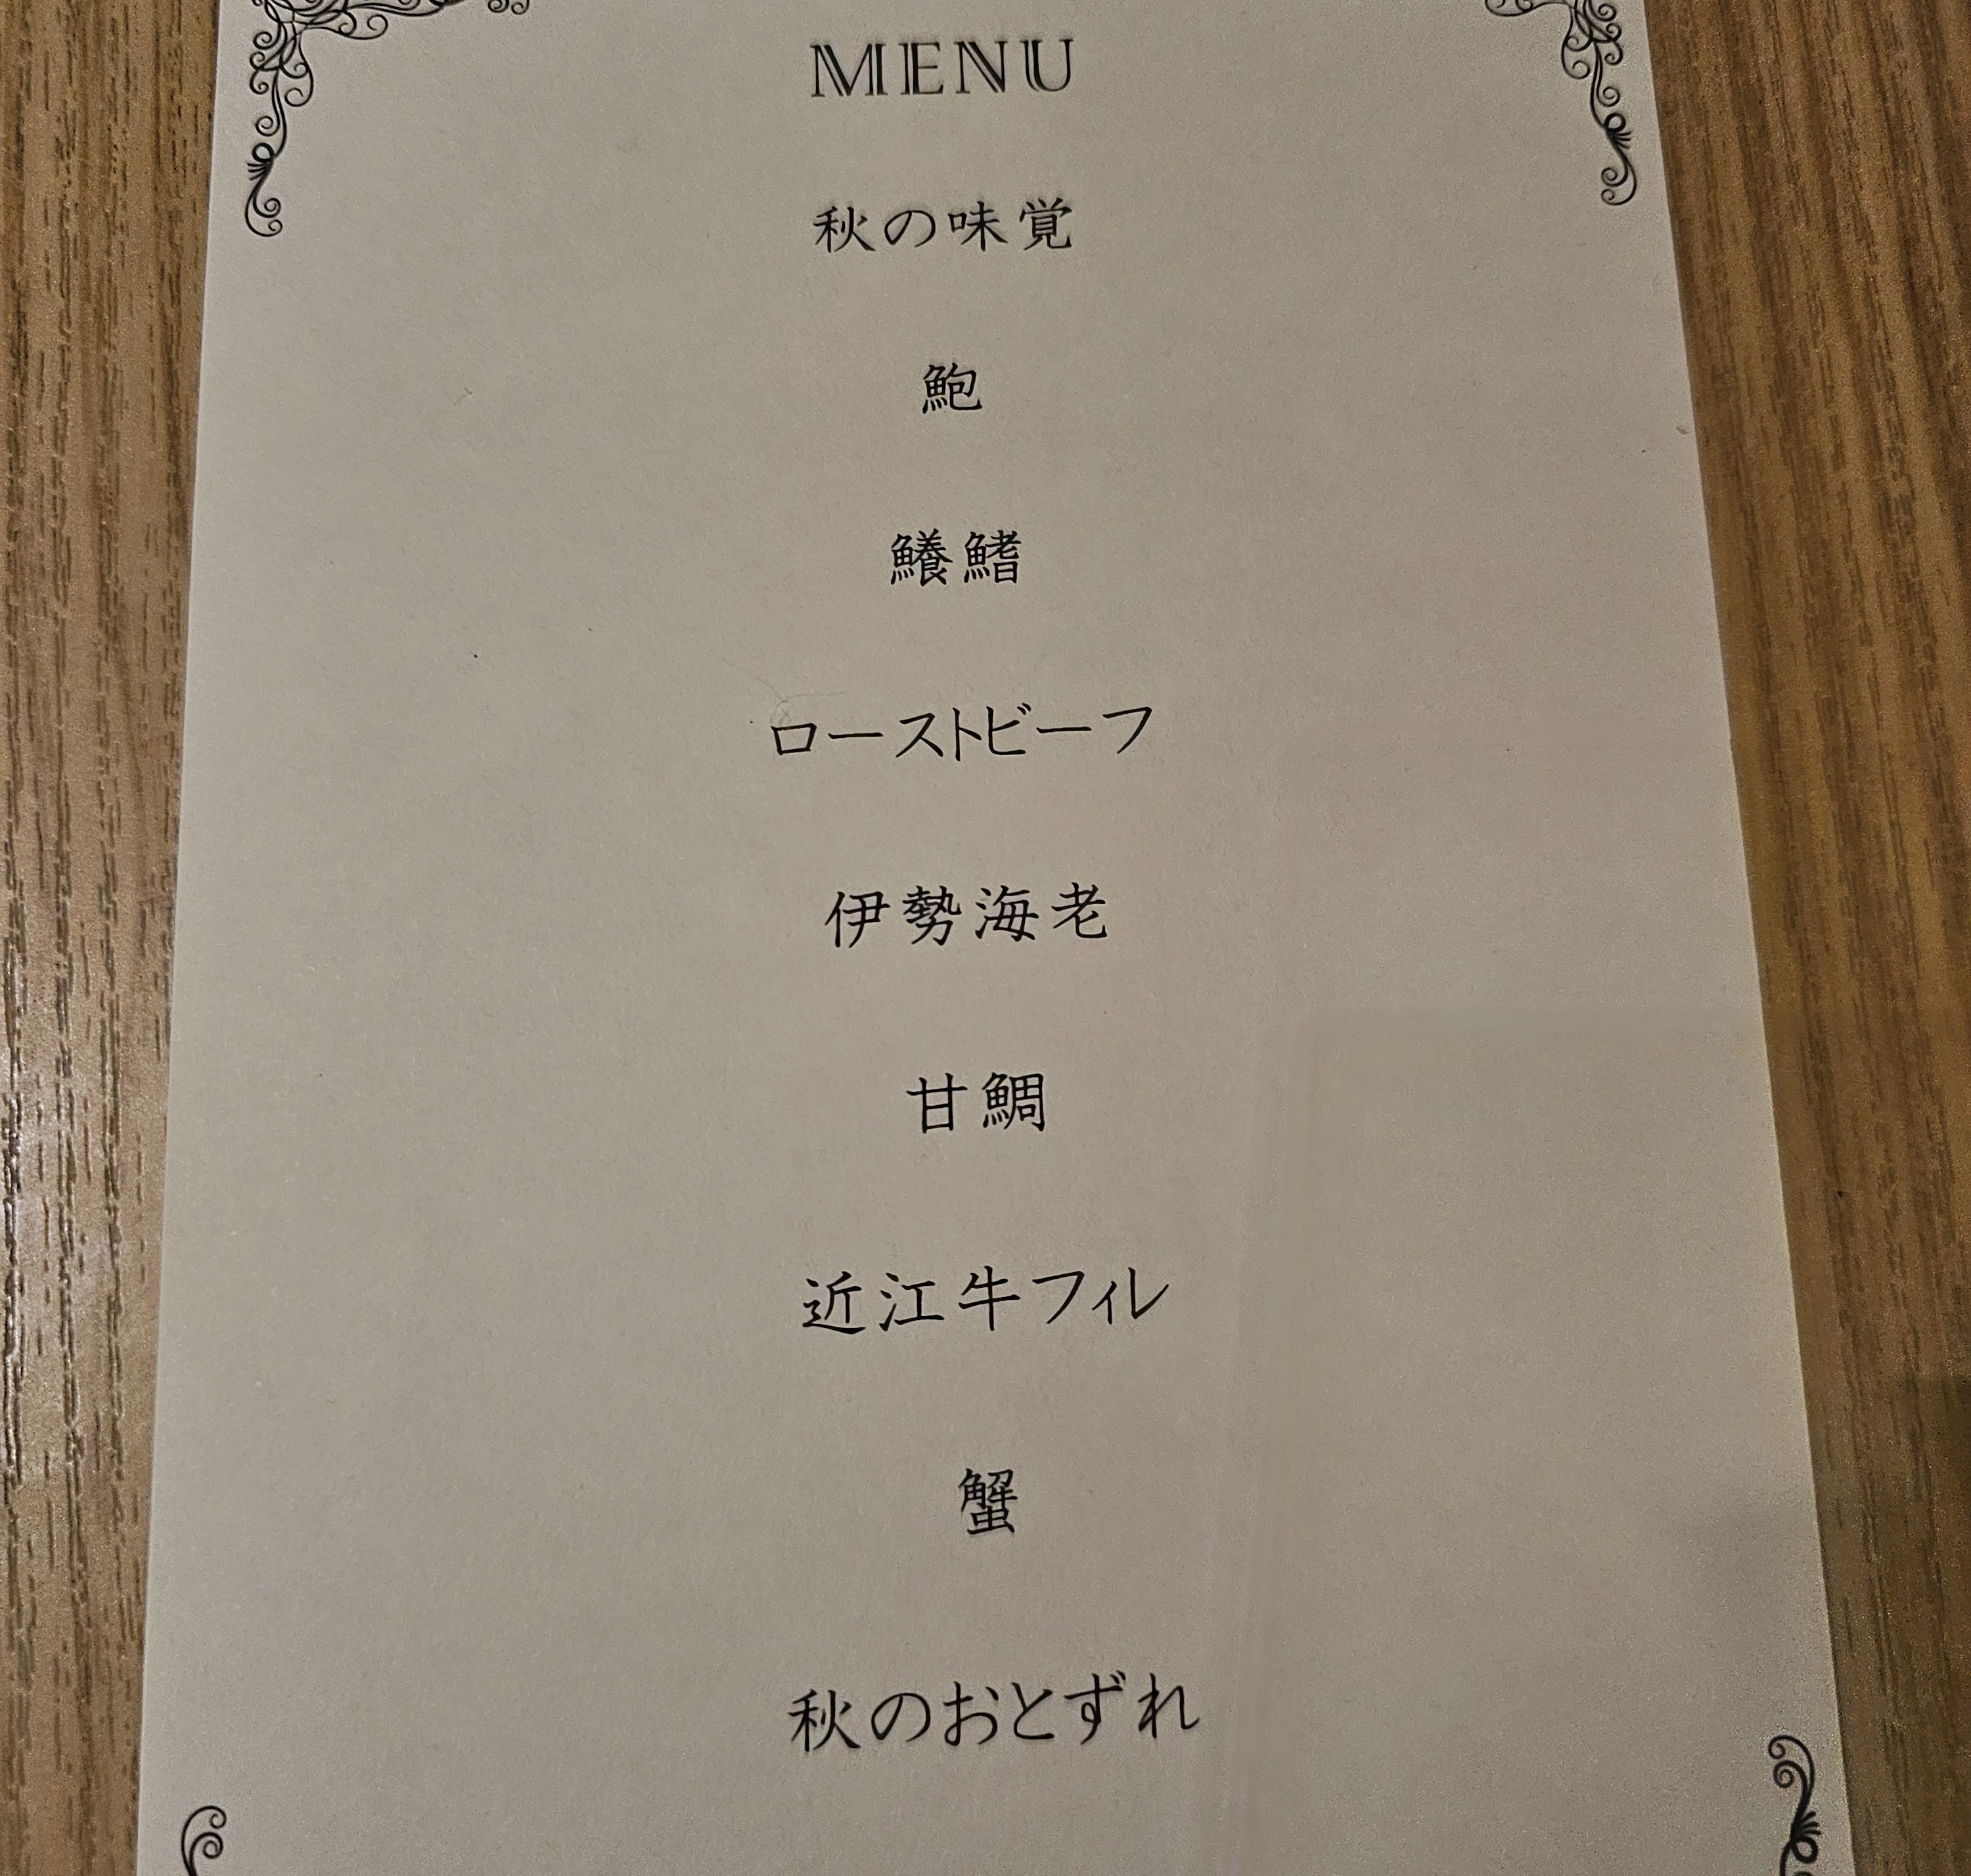 MENU
秋の味覚
鮑
鱶鰭
ローストビーフ
伊勢海老
甘鯛
近江牛フィレ
蟹
秋のおとずれ